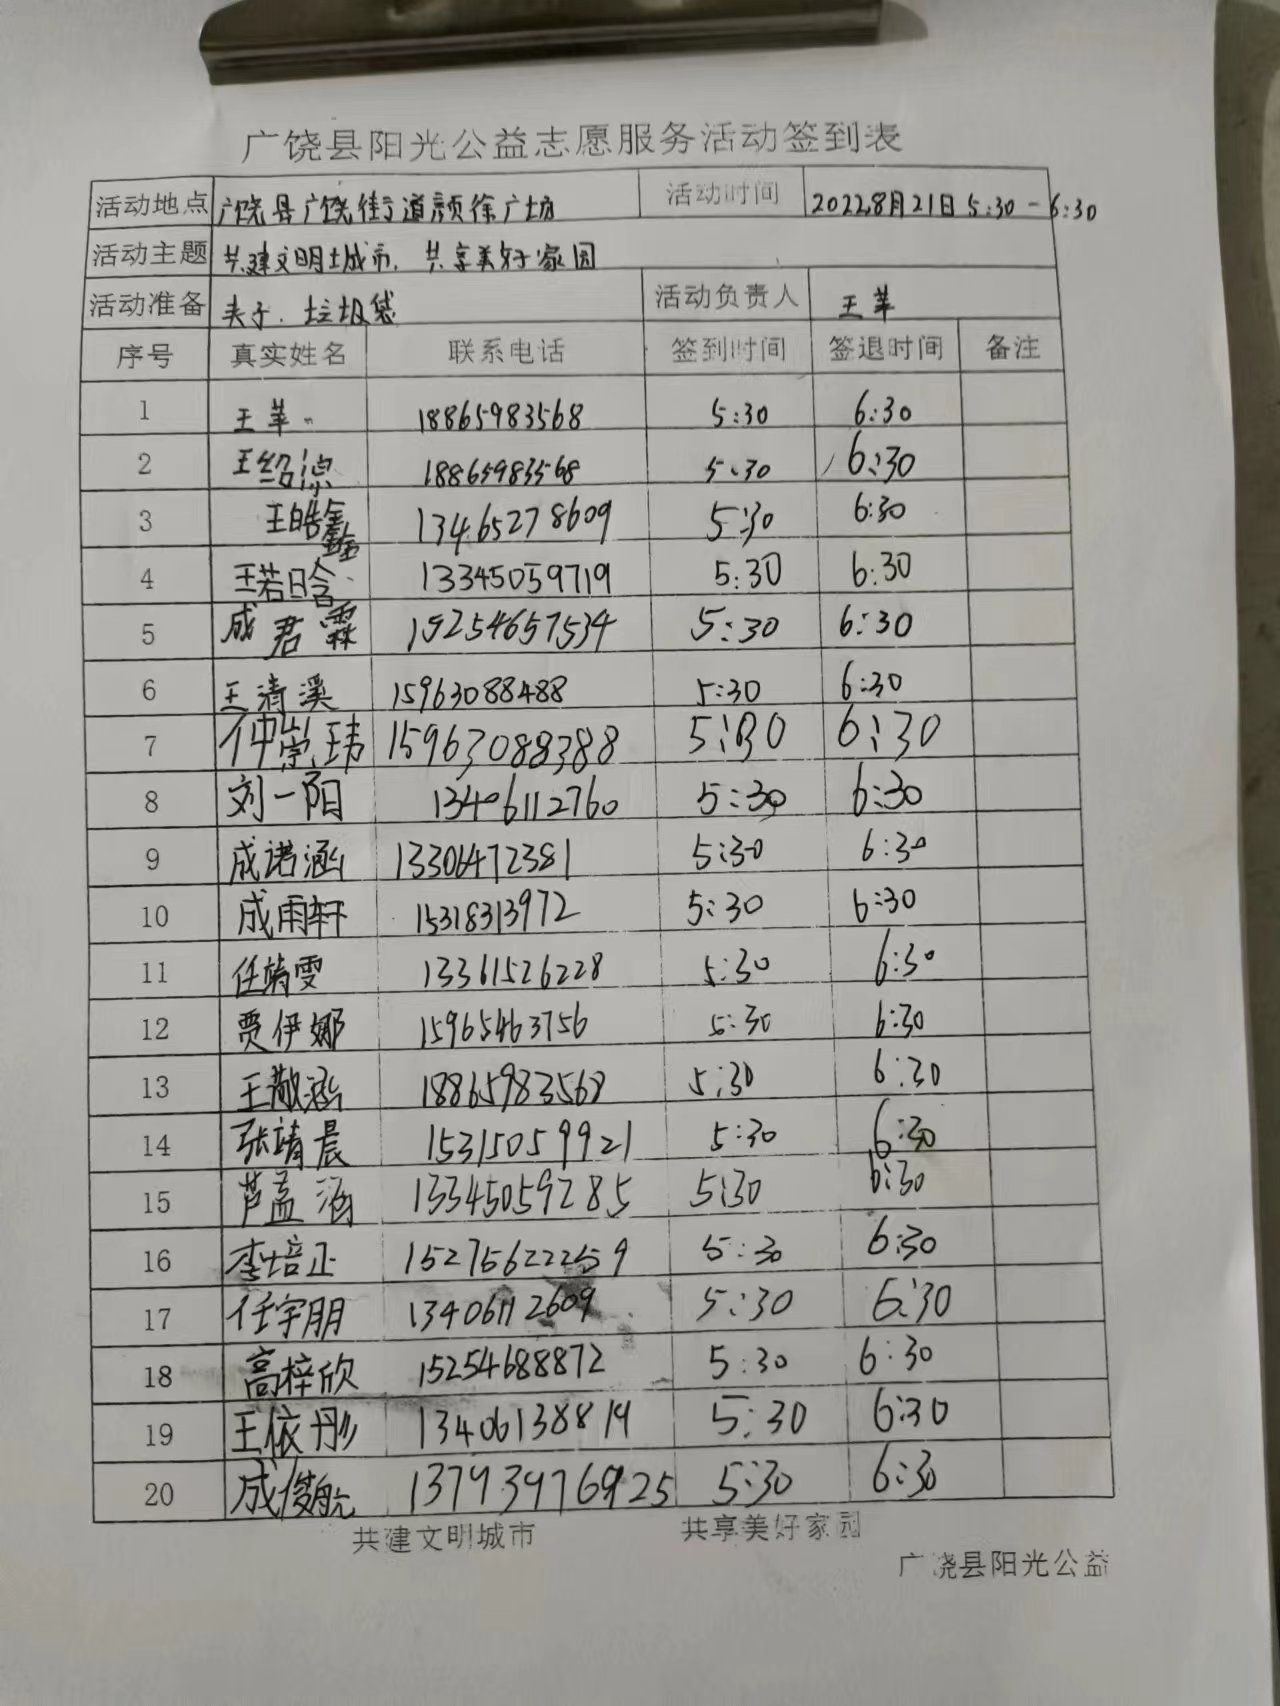 广饶县阳光公益志愿服务活动签到表
活动地点 广饶县广饶街道颜徐广场 活动时间 2022.8月21日 5:30-6:30
活动主题 共建文明城市、共享美好家园
活动准备 夹子、垃圾袋 活动负责人 王苹
序号 真实姓名 联系电话 签到时间 签退时间 备注
1 王苹 18865983568 5:30 6:30
2 王绍淙 18865983568 5:30 6:30
3 王皓鑫 13465278609 5:30 6:30
4 王若晗 13345059719 5:30 6:30
5 成君霖 15254657534 5:30 6:30
6 王清溪 15963088488 5:30 6:30
7 仲崇玮 15963088388 5:30 6:30
8 刘一阳 13406112760 5:30 6:30
9 成诺涵 13306472381 5:30 6:30
10 成雨轩 15318313972 5:30 6:30
11 任靖雯 13361526228 5:30 6:30
12 贾伊娜 15965463756 5:30 6:30
13 王敬涵 18865983568 5:30 6:30
14 张靖晨 15315059921 5:30 6:30
15 芦孟涵 13345059285 5:30 6:30
16 李培正 5:30 6:30
17 任宇朋 13406112609 5:30 6:30
18 高梓欣 15254688872 5:30 6:30
19 王依彤 13406138819 5:30 6:30
20 成俊航 5:30 6:30
共建文明城市 共享美好家园
广饶县阳光公益